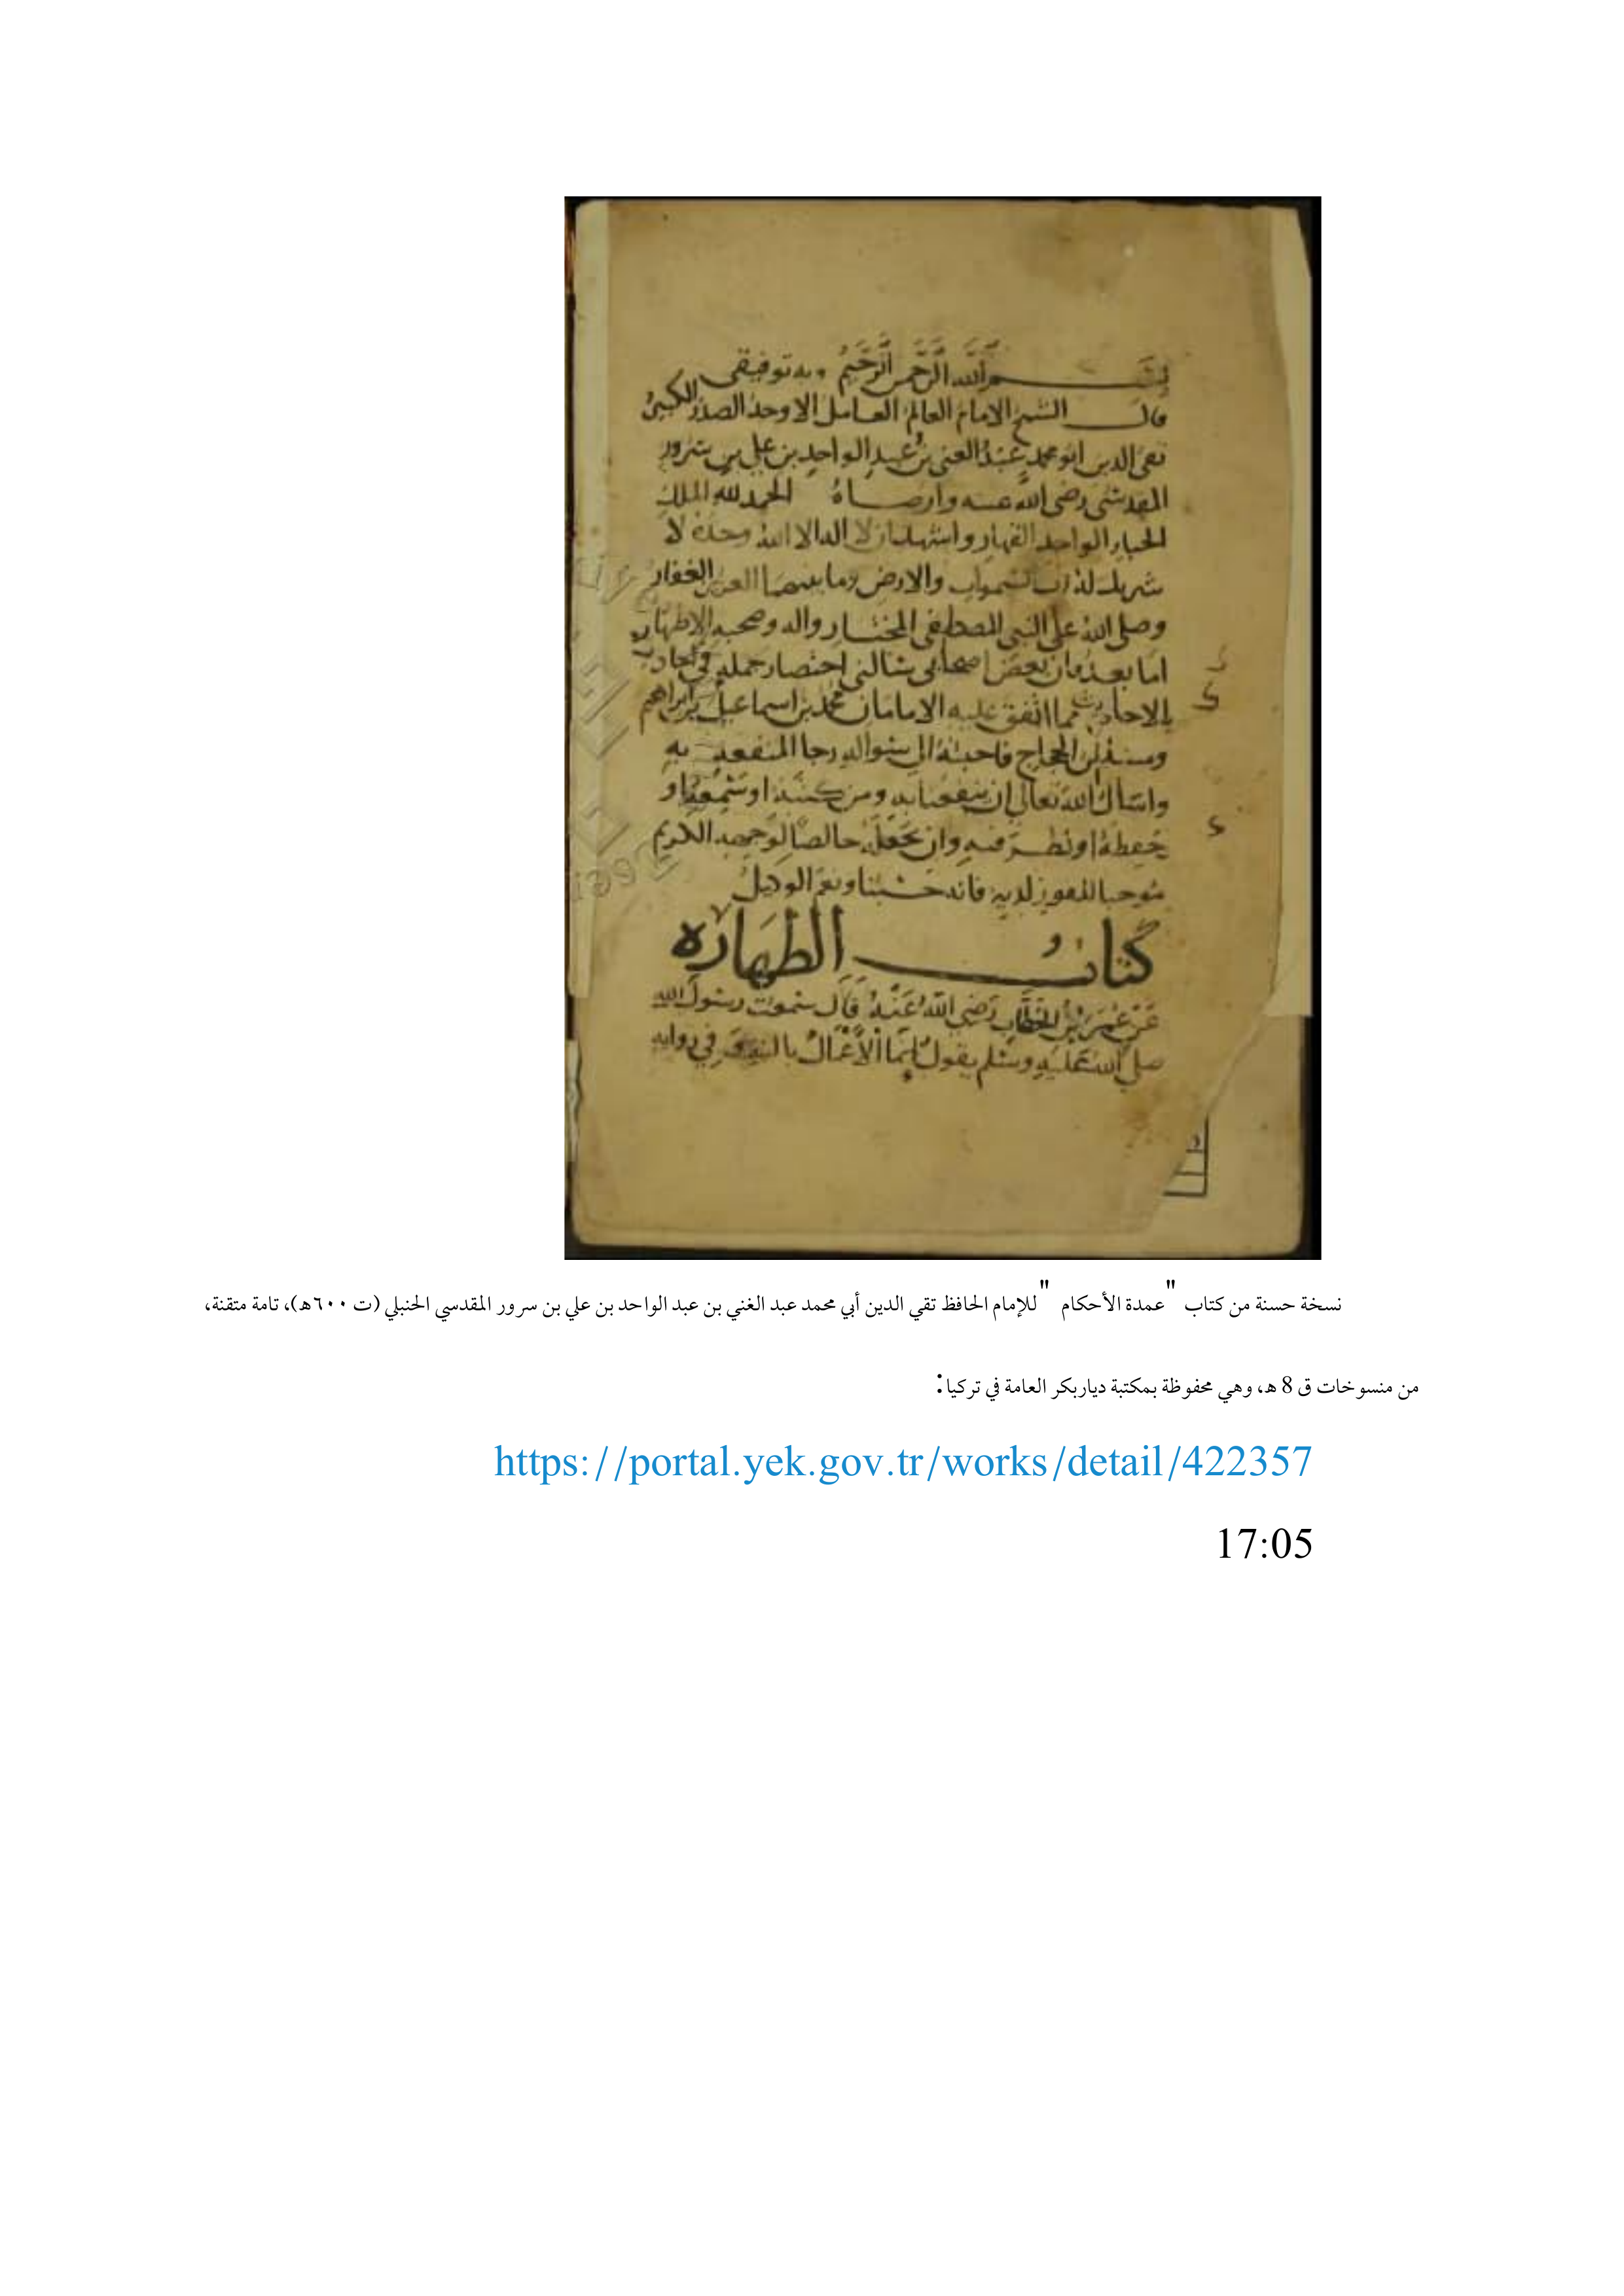 بسم الله الرحمن الرحيم وبه توفيقي
قال الشيخ الامام العالم العامل الاوحد الصدر الكبير
تقي الدين ابو محمد عبد الغني بن عبد الواحد بن علي بن سرور
المقدسي رضي الله عنه وارضاه الحمد لله الملك
الجبار الواحد القهار واشهد ان لا اله الا الله وحده لا
شريك له رب السموات والارض وما بينهما العزيز الغفار
وصلى الله على النبي المصطفى المختار واله وصحبه الاطهار
اما بعد فان بعض اصحابي سالني اختصار جملة في احاديث
الاحكام مما اتفق عليه الامامان محمد بن اسماعيل بن ابراهيم
ومسلم بن الحجاج فاجبته الى سواله رجا المنفعة به
واسال الله تعالى ان ينفعنا به ومن كتبه او سمعه او
حفظه او نظر فيه وان يجعله خالصا لوجهه الكريم
موجبا للفوز لديه فانه حسبنا ونعم الوكيل
كتاب الطهارة
عَن عُمَر بن الخطاب رَضِي اللهُ عَنْهُ قَالَ سمعت رسول الله
صلى الله عليه وسلم يقول إنما الأعمال بالنية وفي رواية
نسخة حسنة من كتاب "عمدة الأحكام" للإمام الحافظ تقي الدين أبي محمد عبد الغني بن عبد الواحد بن علي بن سرور المقدسي الحنبلي (ت ٦٠٠هـ)، تامة متقنة،
من منسوخات ق 8 هـ، وهي محفوظة بمكتبة دياربكر العامة في تركيا:
https://portal.yek.gov.tr/works/detail/422357
17:05